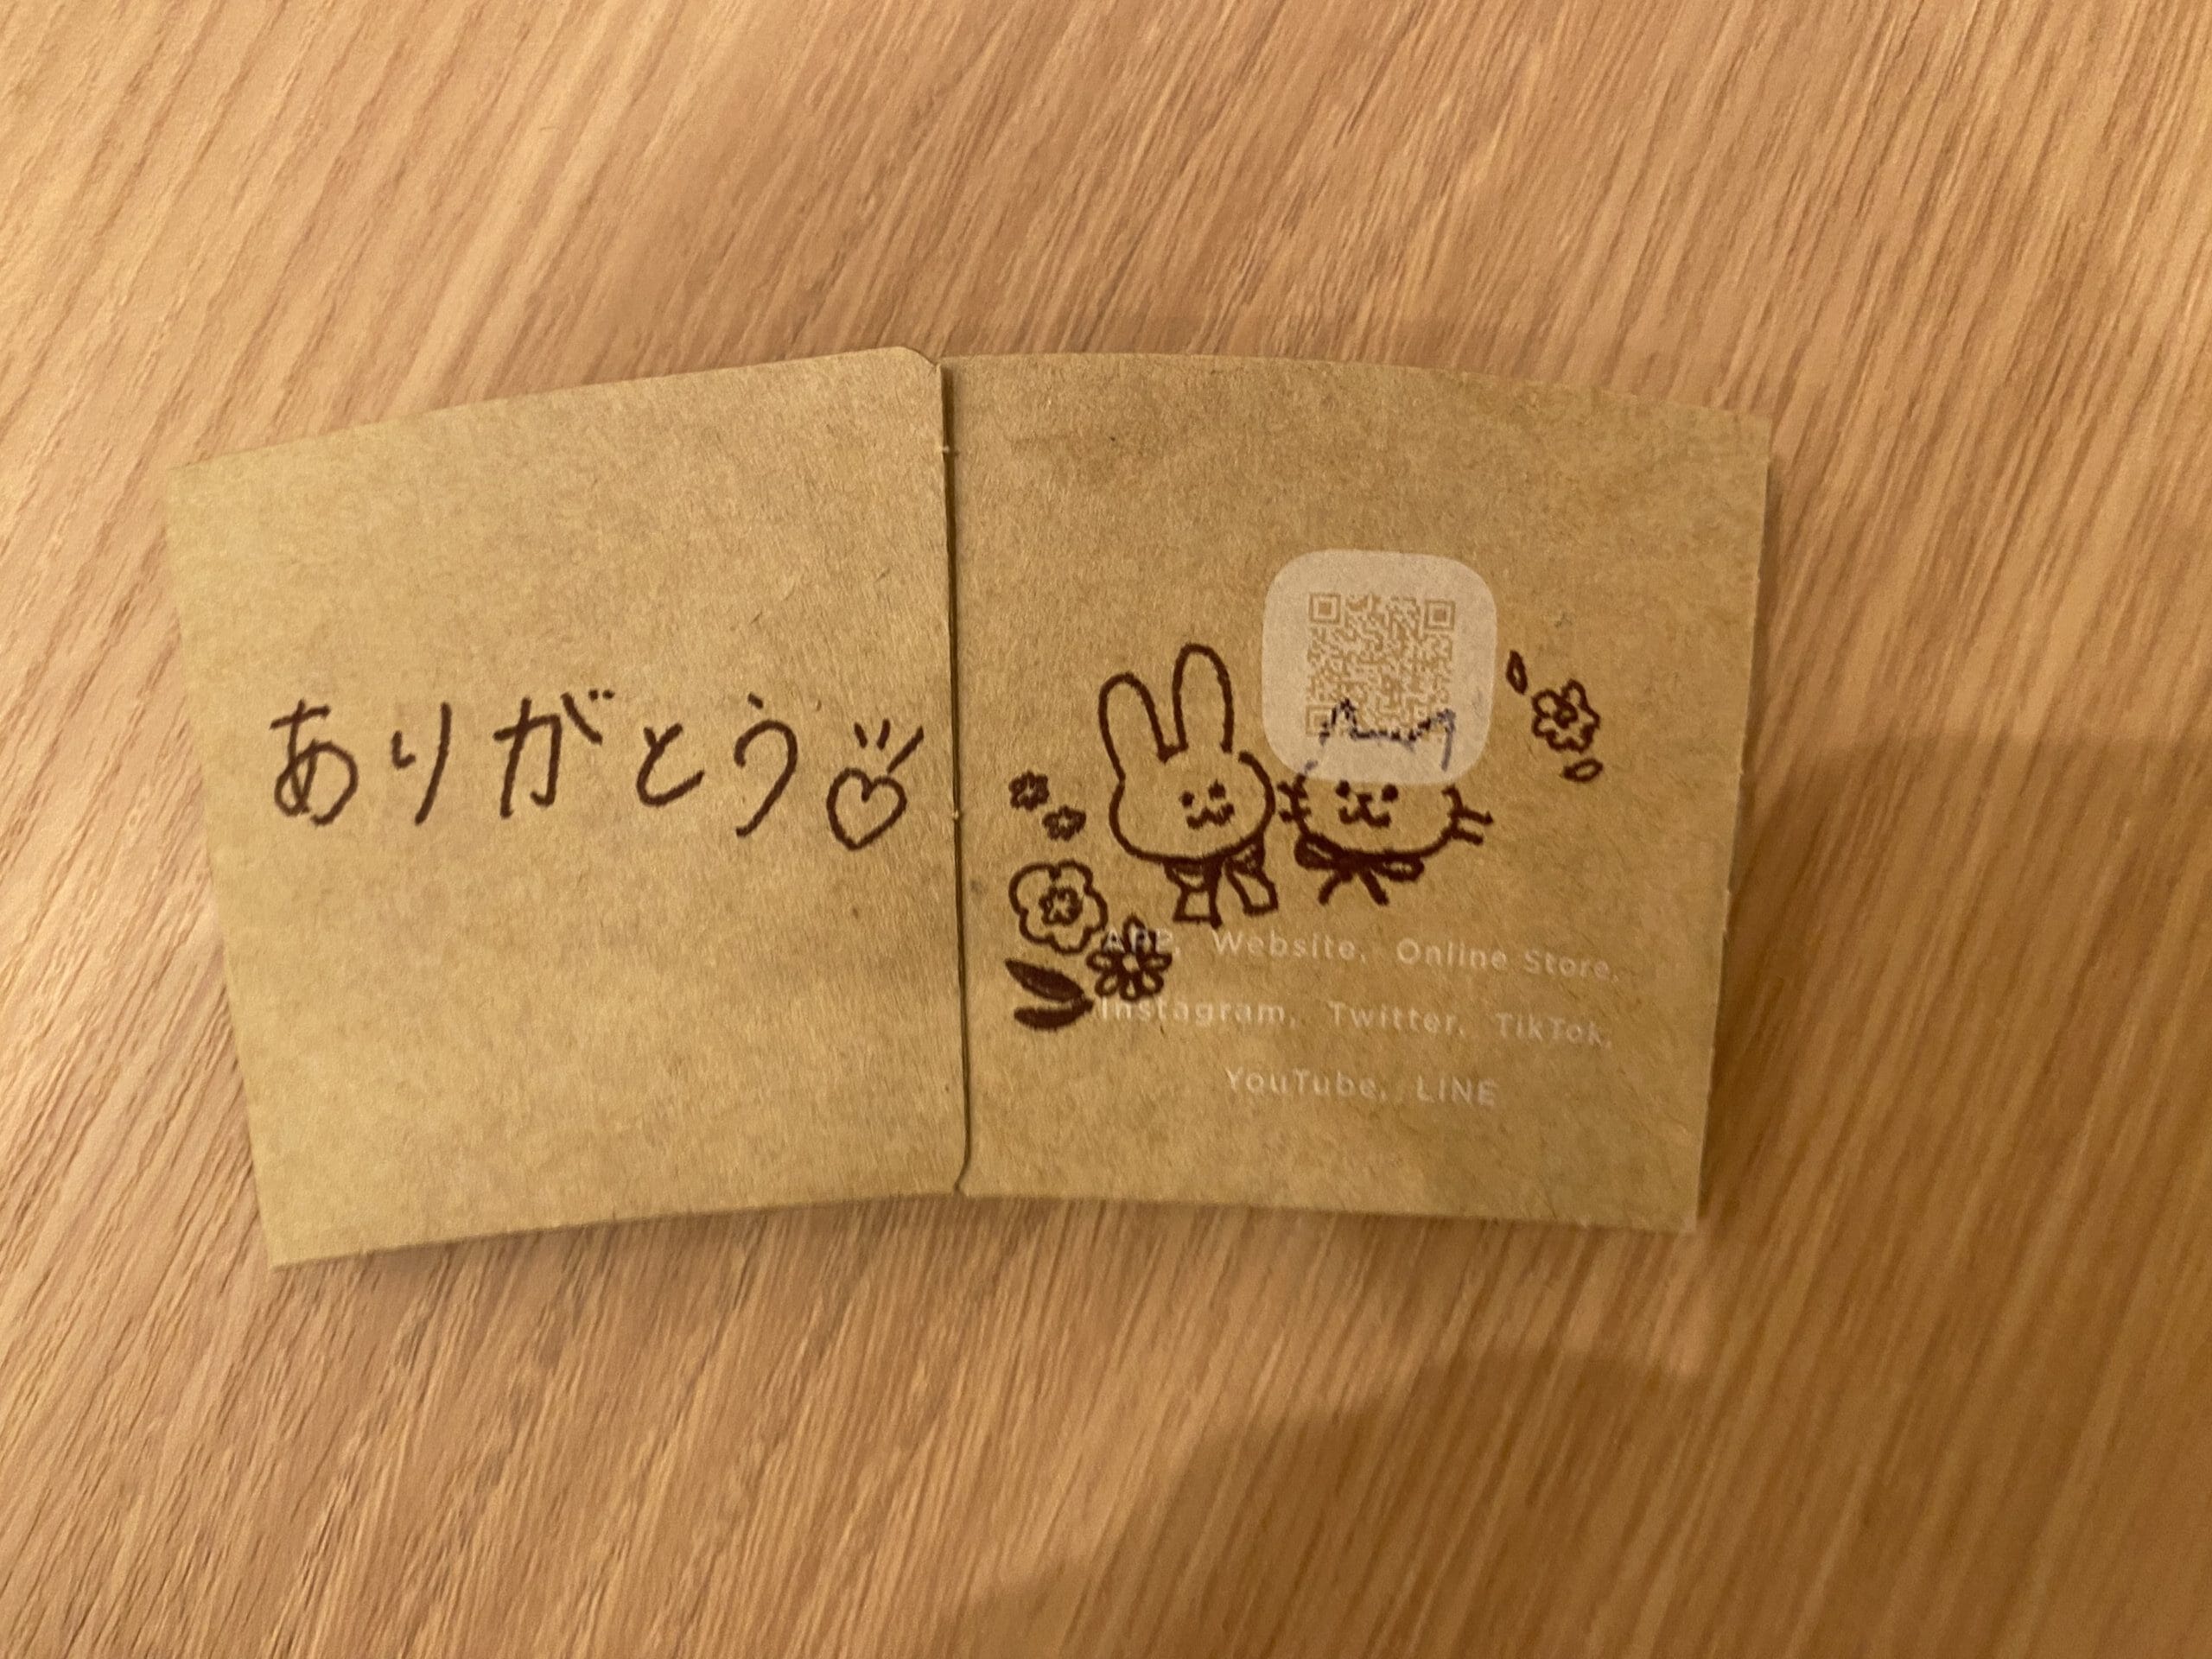 ありがとう
APP, Website, Online Store,
Instagram, Twitter, TikTok,
YouTube, LINE